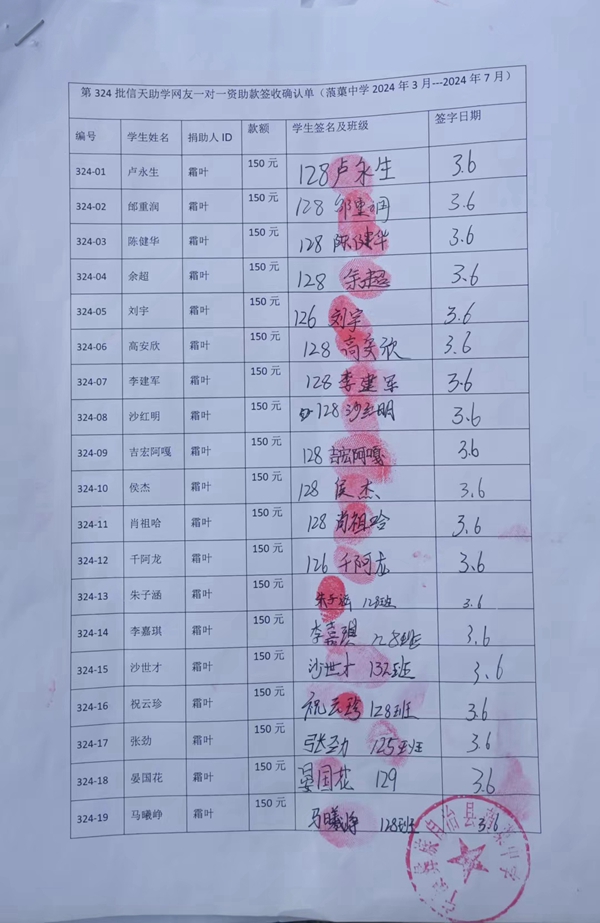 第 324 批信天助学网友一对一资助款签收确认单（蒗蕖中学 2024 年 3 月---2024 年 7 月）
编号 学生姓名 捐助人 ID 款额 学生签名及班级 签字日期
324-01 卢永生 霜叶 150 元 128 卢永生 3.6
324-02 邰重润 霜叶 150 元 128 3.6
324-03 陈健华 霜叶 150 元 128 陈健华 3.6
324-04 余超 霜叶 150 元 128 余超 3.6
324-05 刘宇 霜叶 150 元 126 刘宇 3.6
324-06 高安欣 霜叶 150 元 128 高安欣 3.6
324-07 李建军 霜叶 150 元 128 李建军 3.6
324-08 沙红明 霜叶 150 元 128 沙红明 3.6
324-09 吉宏阿嘎 霜叶 150 元 128 吉宏阿嘎 3.6
324-10 侯杰 霜叶 150 元 128 侯杰 3.6
324-11 肖祖哈 霜叶 150 元 128 肖祖哈 3.6
324-12 千阿龙 霜叶 150 元 126 千阿龙 3.6
324-13 朱子涵 霜叶 150 元 朱子涵 128班 3.6
324-14 李嘉琪 霜叶 150 元 李嘉琪 128班 3.6
324-15 沙世才 霜叶 150 元 沙世才 132班 3.6
324-16 祝云珍 霜叶 150 元 祝云珍 128班 3.6
324-17 张劲 霜叶 150 元 张劲 125班 3.6
324-18 晏国花 霜叶 150 元 晏国花 129 3.6
324-19 马曦峥 霜叶 150 元 马曦峥 128班 3.6